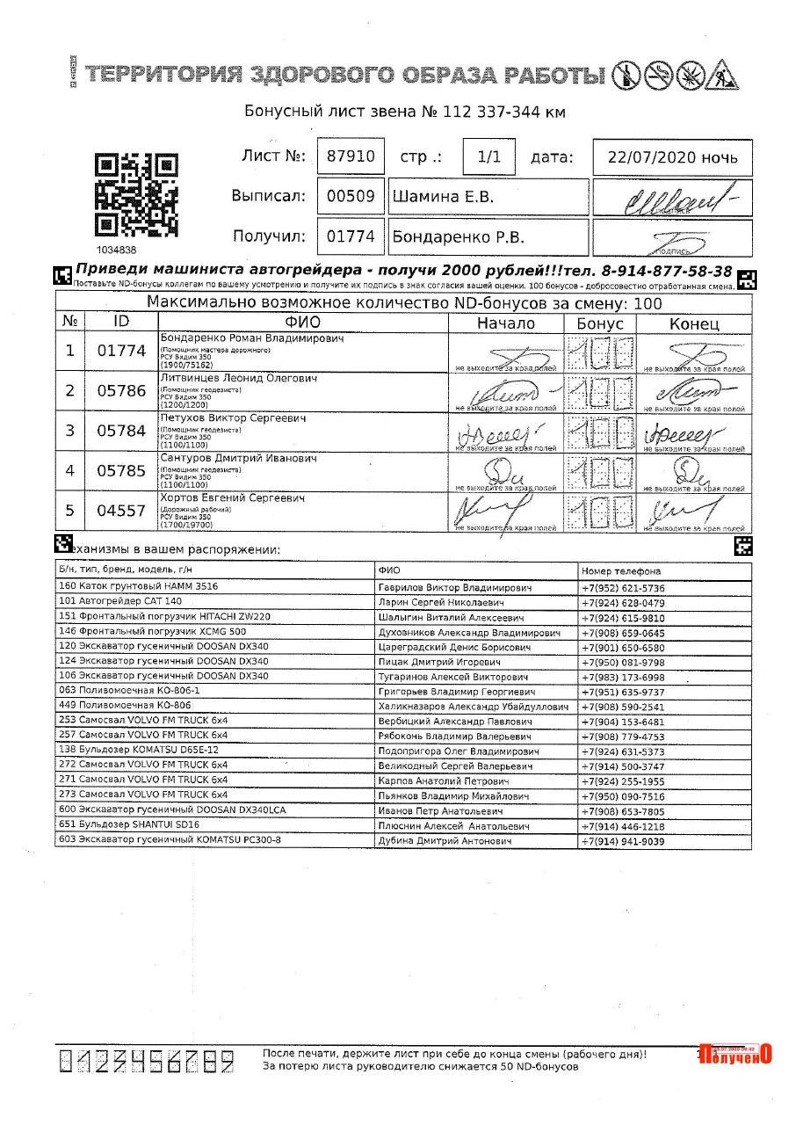 ТЕРРИТОРИЯ ЗДОРОВОГО ОБРАЗА РАБОТЫ
Бонусный лист звена № 112 337-344 км
Лист №: 87910 стр .: 1/1 дата: 22/07/2020 ночь
Выписал: 00509 Шамина Е.В.
Получил: 01774 Бондаренко Р.В. подпись
1034838
Приведи машиниста автогрейдера - получи 2000 рублей!!!тел. 8-914-877-58-38
Поставьте ND-бонусы коллегам по вашему усмотрению и получите их подпись в знак согласия вашей оценки. 100 бонусов - добросовестно отработанная смена.
Максимально возможное количество ND-бонусов за смену: 100
№ ID ФИО Начало Бонус Конец
1 01774 Бондаренко Роман Владимирович 100
(Помощник мастера дорожного)
РСУ Видим 350
(1900/75162) не выходите за края полей не выходите за края полей
2 05786 Литвинцев Леонид Олегович 100
(Помощник геодезиста)
РСУ Видим 350
(1200/1200) не выходите за края полей не выходите за края полей
3 05784 Петухов Виктор Сергеевич 100
(Помощник геодезиста)
РСУ Видим 350
(1100/1100) не выходите за края полей не выходите за края полей
4 05785 Сантуров Дмитрий Иванович 100
(Помощник геодезиста)
РСУ Видим 350
(1100/1100) не выходите за края полей не выходите за края полей
5 04557 Хортов Евгений Сергеевич 100
(Дорожный рабочий)
РСУ Видим 350
(1700/19700) не выходите за края полей не выходите за края полей
еханизмы в вашем распоряжении:
Б/н, тип, бренд, модель, г/н ФИО Номер телефона
160 Каток грунтовый HAMM 3516 Гаврилов Виктор Владимирович +7(952) 621-5736
101 Автогрейдер CAT 140 Ларин Сергей Николаевич +7(924) 628-0479
151 Фронтальный погрузчик HITACHI ZW220 Шалыгин Виталий Алексеевич +7(924) 615-9810
146 Фронтальный погрузчик XCMG 500 Духовников Александр Владимирович +7(908) 659-0645
120 Экскаватор гусеничный DOOSAN DX340 Цареградский Денис Борисович +7(901) 650-6580
124 Экскаватор гусеничный DOOSAN DX340 Пицак Дмитрий Игоревич +7(950) 081-9798
106 Экскаватор гусеничный DOOSAN DX340 Тугаринов Алексей Викторович +7(983) 173-6998
063 Поливомоечная КО-806-1 Григорьев Владимир Георгиевич +7(951) 635-9737
449 Поливомоечная КО-806 Халикназаров Александр Убайдуллович +7(908) 590-2541
253 Самосвал VOLVO FM TRUCK 6x4 Вербицкий Александр Павлович +7(904) 153-6481
257 Самосвал VOLVO FM TRUCK 6x4 Рябоконь Владимир Валерьевич +7(908) 779-4753
138 Бульдозер KOMATSU D65E-12 Подопригора Олег Владимирович +7(924) 631-5373
272 Самосвал VOLVO FM TRUCK 6x4 Великодный Сергей Валерьевич +7(914) 500-3747
271 Самосвал VOLVO FM TRUCK 6x4 Карпов Анатолий Петрович +7(924) 255-1955
273 Самосвал VOLVO FM TRUCK 6x4 Пьянков Владимир Михайлович +7(950) 090-7516
600 Экскаватор гусеничный DOOSAN DX340LCA Иванов Петр Анатольевич +7(908) 653-7805
651 Бульдозер SHANTUI SD16 Плюснин Алексей Анатольевич +7(914) 446-1218
603 Экскаватор гусеничный KOMATSU PC300-8 Дубина Дмитрий Антонович +7(914) 941-9039
0123456789 После печати, держите лист при себе до конца смены (рабочего дня)!
За потерю листа руководителю снижается 50 ND-бонусов
ПолученО